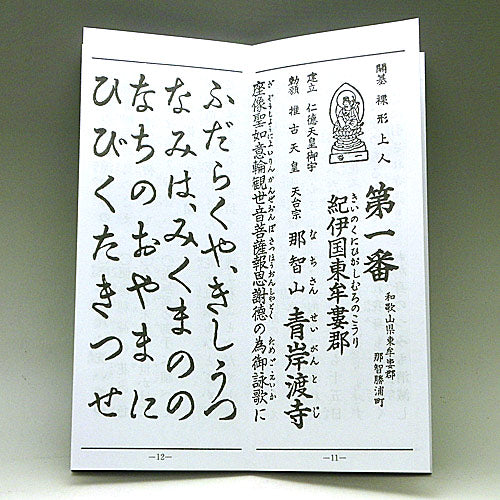 開基 裸形上人
建立 仁徳天皇御宇
勅願 推古天皇
第一番
和歌山県東牟婁郡
那智勝浦町
きいのくにひがしむろのこうり
紀伊国東牟婁郡
なちさん せいがんとじ
天台宗 那智山 青岸渡寺
ざぞうしようによいりんかんぜおんぼさつほうおんしやとく ためごえいか
座像聖如意輪観世音菩薩報恩謝徳の為御詠歌に
—11—
ふだらくや、きしうつ
なみは、みくまのの
なちのおやまに
ひびくたきつせ
—12—